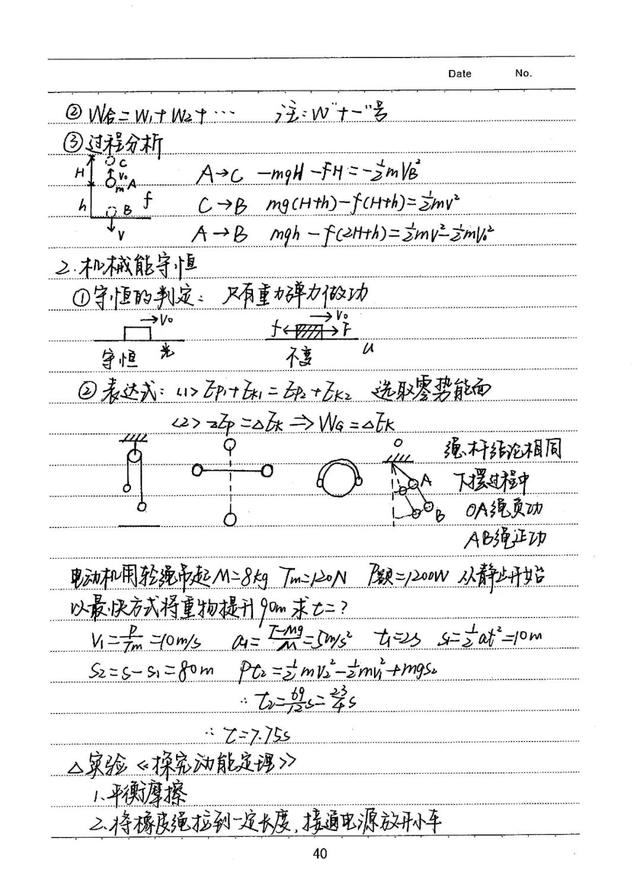 Date No.
② W合=W₁+W₂+… 注:W"+-"号
③过程分析
H C v₀ m A h B f v
A→C -mgH-fH=-½mV₀²
C→B mg(H+h)-f(H+h)=½mv²
A→B mgh-f(2H+h)=½mv²-½mV₀²
2.机械能守恒
①守恒的判定: 只有重力弹力做功
→V₀ →V₀
f F
守恒 光 不变 u
②表达式: <1> Ep₁+Ek₁=Ep₂+Ek₂ 选取零势能面
<2> -ΔEp=ΔEk⇒WG=ΔEk
O A B
绳.杆结论相同
下摆过程中
OA绳负功
AB绳正功
电动机用轻绳吊起M=8kg Tm=120N P额=1200W 从静止开始
以最快方式将重物提升90m求t=?
V₁=P/Tm=10m/s a₁=(T-Mg)/M=5m/s² t₁=2s s₁=½at²=10m
S₂=s-s₁=80m Pt₂=½mv₂²-½mv₁²+mgs₂
∴t₂=69/12s=23/4s
∴t=7.75s
△实验《探究动能定理》
1.平衡摩擦
2.将橡皮绳拉到一定长度,接通电源放开小车
40